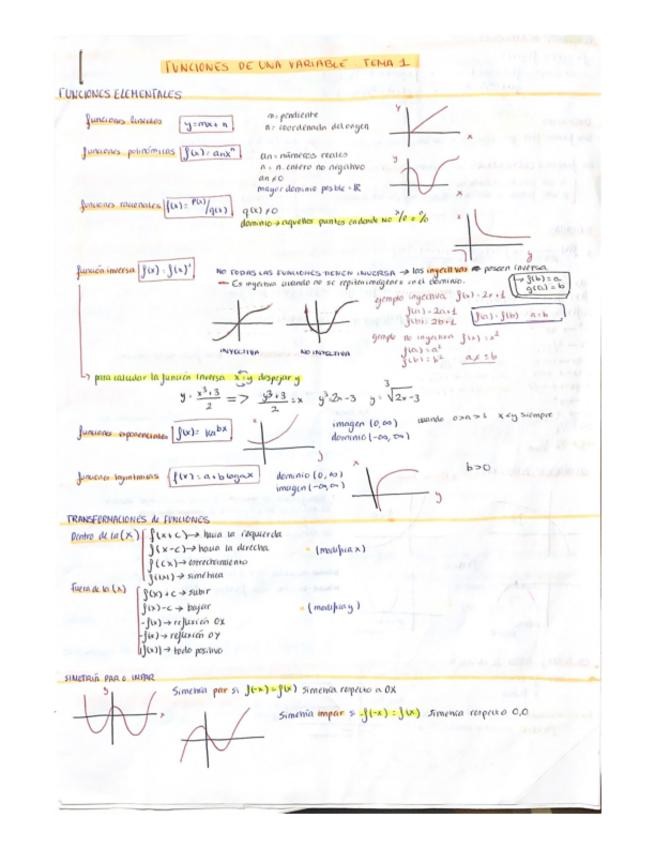 FUNCIONES DE UNA VARIABLE TEMA 1
FUNCIONES ELEMENTALES
funciones lineales y=mx+n
m=pendiente
n=coordenada del origen
funciones polinómicas f(x)=anxⁿ
an=números reales
n=n. entero no negativo
an≠0
mayor dominio posible=ℝ
funciones racionales f(x)=P(x)/q(x)
q(x)≠0
dominio→aquellos puntos en donde NO
función inversa
NO TODAS LAS FUNCIONES TIENEN INVERSA → las inyectivas poseen inversa
Es inyectiva cuando no se repiten imágenes en el dominio.
f(b)=a
g(a)=b
ejemplo inyectiva f(x)=2x+1
f(a)=2a+1
f(b)=2b+1
f(a)=f(b) a=b
ejemplo no inyectiva f(x)=x²
f(a)=a²
f(b)=b²
INYECTIVA NO INYECTIVA
para calcular la función inversa x=y despejar y
y=x³+3/2 => y³+3/2=x y³=2x-3 y=³√2x-3
funciones exponenciales f(x)=ka^bx
imagen (0,∞)
dominio(-∞,∞)
cuando x<y siempre
funciones logarítmicas f(x)=a+b logax
dominio (0,∞)
imagen(-∞,∞)
b>0
TRANSFORMACIONES de FUNCIONES
Dentro de la (x)
f(x+c)→hacia la izquierda
f(x-c)→hacia la derecha
f(cx)→estrechamiento
→simétrica
(modifica x)
fuera de la (x)
f(x)+c→subir
f(x)-c→bajar
-f(x)→reflexión OX
-f(x)→reflexión OY
|f(x)|→todo positivo
(modifica y)
SIMETRÍA PAR O IMPAR
Simetría par si f(-x)=f(x) simetría respecto a OX
Simetría impar si -f(-x)=f(x) simetría respecto 0,0